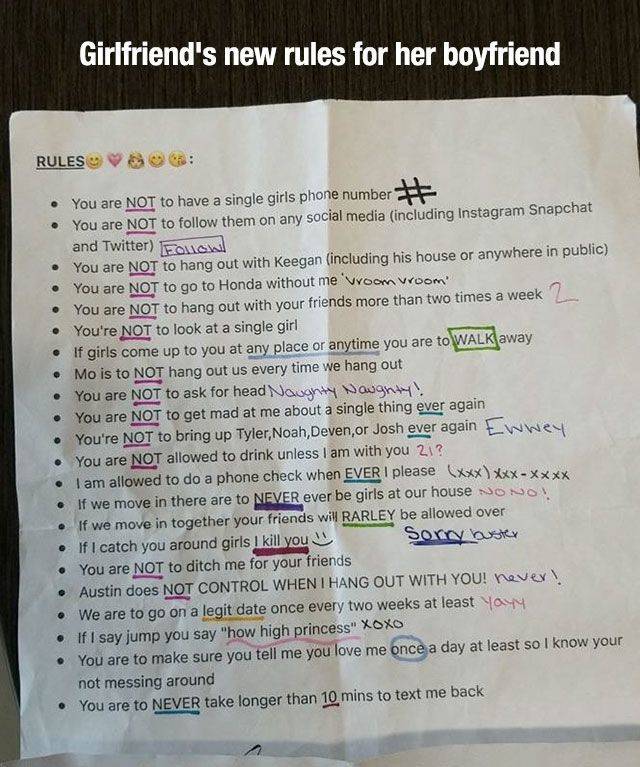 Girlfriend's new rules for her boyfriend
RULES😊 💗 👸 😊 😘 :
• You are NOT to have a single girls phone number #
• You are NOT to follow them on any social media (including Instagram Snapchat
and Twitter) Follow
• You are NOT to hang out with Keegan (including his house or anywhere in public)
• You are NOT to go to Honda without me 'vroom vroom'
• You are NOT to hang out with your friends more than two times a week 2
• You're NOT to look at a single girl
• If girls come up to you at any place or anytime you are to WALK away
• Mo is to NOT hang out us every time we hang out
• You are NOT to ask for head Naughty Naughty!
• You are NOT to get mad at me about a single thing ever again
• You're NOT to bring up Tyler,Noah,Deven,or Josh ever again Ewwey
• You are NOT allowed to drink unless I am with you 21?
• I am allowed to do a phone check when EVER I please (xxx) xxx-xxxx
• If we move in there are to NEVER ever be girls at our house NO NO!
• If we move in together your friends will RARLEY be allowed over
• If I catch you around girls I kill you :) Sorry buster
• You are NOT to ditch me for your friends
• Austin does NOT CONTROL WHEN I HANG OUT WITH YOU! never!
• We are to go on a legit date once every two weeks at least Yayy
• If I say jump you say "how high princess" XOXO
• You are to make sure you tell me you love me once a day at least so I know your
not messing around
• You are to NEVER take longer than 10 mins to text me back